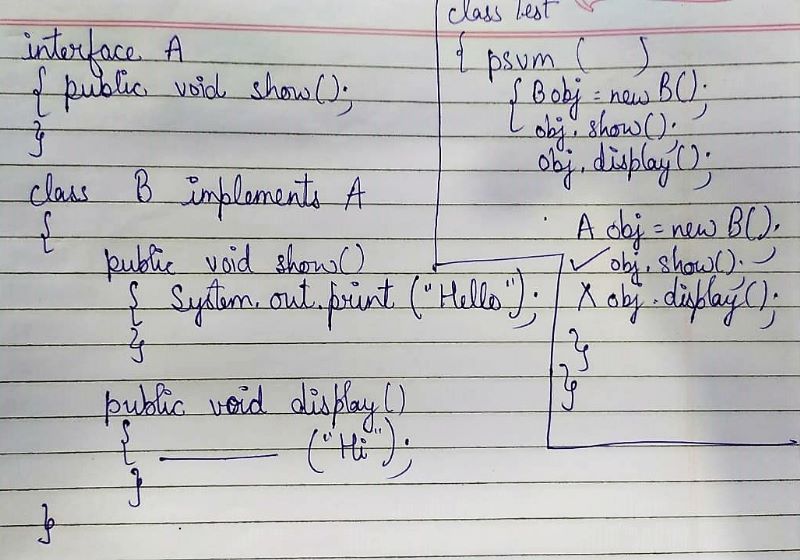 interface A
{ public void show();
}
class B implements A
{
public void show()
{ System.out.print ("Hello");
}
public void display()
{ ("Hi");
}
}
class test
{ psvm ( )
{ B obj = new B();
obj.show();
obj.display();
A obj = new B();
✓ obj.show();
X obj.display();
}
}